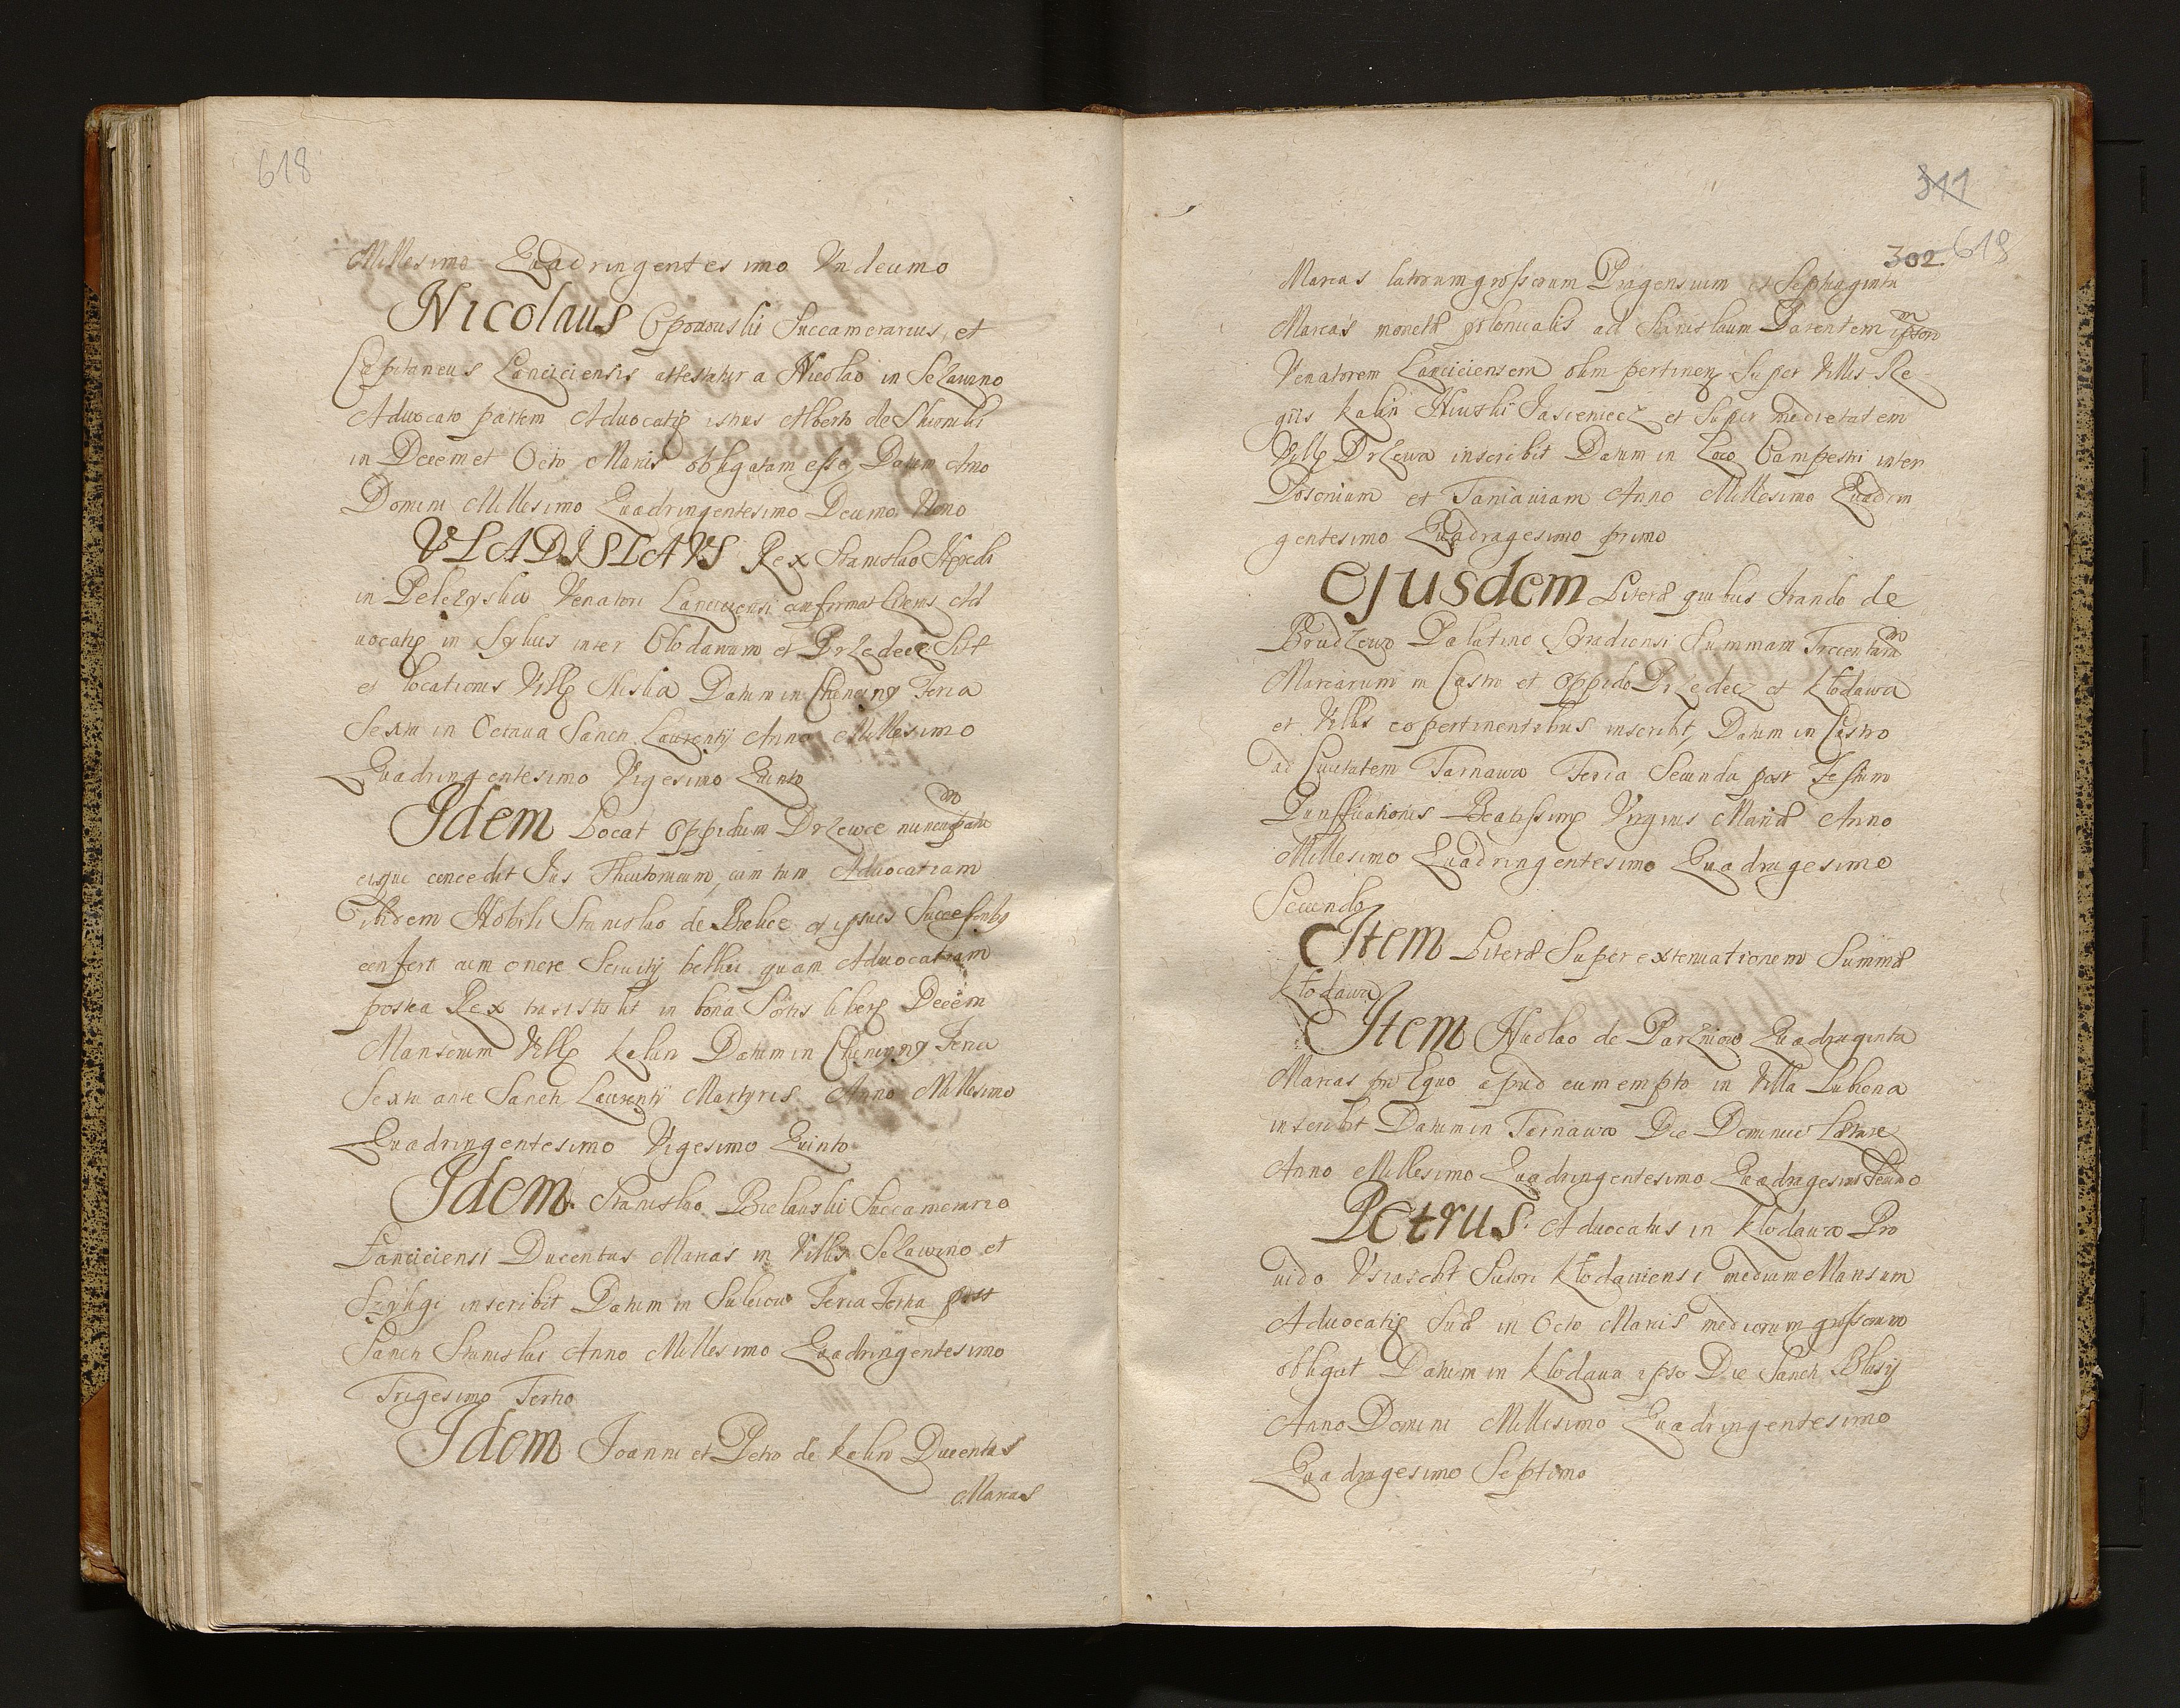 618
Millesimo Quadringentesimo Undecimo
Nicolaus Oporowski Succamerarius, et
Capitaneus Lanciciensis attestatur a Nicolao in Selawino
Advocato partem Advocatię istius Alberto de
in Decem et Octo Marcis obligatam esse, Datum Anno
Domini Millesimo Quadringentesimo Decimo Nono
VLADISLAVS Rex Stanislao
in Pelczyska Venatori Lanciciensi confirmat literas Ad
vocatię in Sylvis inter Clodawam et Przedecz Sitę
et locationis Villę Datum in Chenciny Feria
Sexta in Octava Sancti Laurentij Anno Millesimo
Quadringentesimo Vigesimo Quinto
Idem Locat Oppidum Drzewce nuncupatum
eique concedit Jus Theutonicum, cum tum Advocatiam
ibidem Nobili Stanislao de Bielice et ipsius Successoribus
confert cum onere Servitij bellici quam Advocatiam
postea Rex transtulit in bona Sortis liberę Decem
Mansorum Villę Kalin Datum in Chenciny Feria
Sexta ante Sancti Laurentij Martyris Anno Millesimo
Quadringentesimo Vigesimo Quinto
Idem Stanislao Bielawski Succamerario
Lanciciensi Ducentas Marcas in Villis Selawino et
inscribit Datum in Suleiow Feria Tertia post
Sancti Stanislai Anno Millesimo Quadringentesimo
Trigesimo Tertio
Idem Joanni et Petro de Kalin Ducentas
Marcas
311
302. 619
Marcas latorum grossorum Pragensium et Septuaginta
Marcas monetę polonicalis ad Stanislaum Parentem ipsorum
Venatorem Lanciciensem olim pertinen. Super Villis Re
giis Kalin Jasieniecz et Super medietatem
Villę Drzewce inscribit Datum in Loco Campestri inter
et Anno Millesimo Quadrin
gentesimo Quadragesimo primo
Ejusdem Literę quibus Irando de
Brudzewo Palatino Syradiensi Summam Trecentarum
Marcarum in Castro et Oppido Przedecz et Kłodawa
et Villis eo pertinentibus inscribit, Datum in Castro
ad Civitatem Tarnawa Feria Secunda post Festum
Purificationis Beatissimę Virginis Marię Anno
Millesimo Quadringentesimo Quadragesimo
Secundo
Item Literę Super extenuationem Summę
Kłodawa
Item Nicolao de Parzniow Quadraginta
Marcas pro Equo apud eum empto in Villa Lubona
inscribit Datum in Tarnawa Die Dominico Lætare
Anno Millesimo Quadringentesimo Quadragesimo Secundo
Petrus Advocatus in Klodawa Pro
vido Sutori Kłodaviensi medium Mansum
Advocatię Suę in Octo Marcis mediorum grossorum
obligat Datum in Klodawa ipso Die Sancti Blasij
Anno Domini Millesimo Quadringentesimo
Quadragesimo Septimo